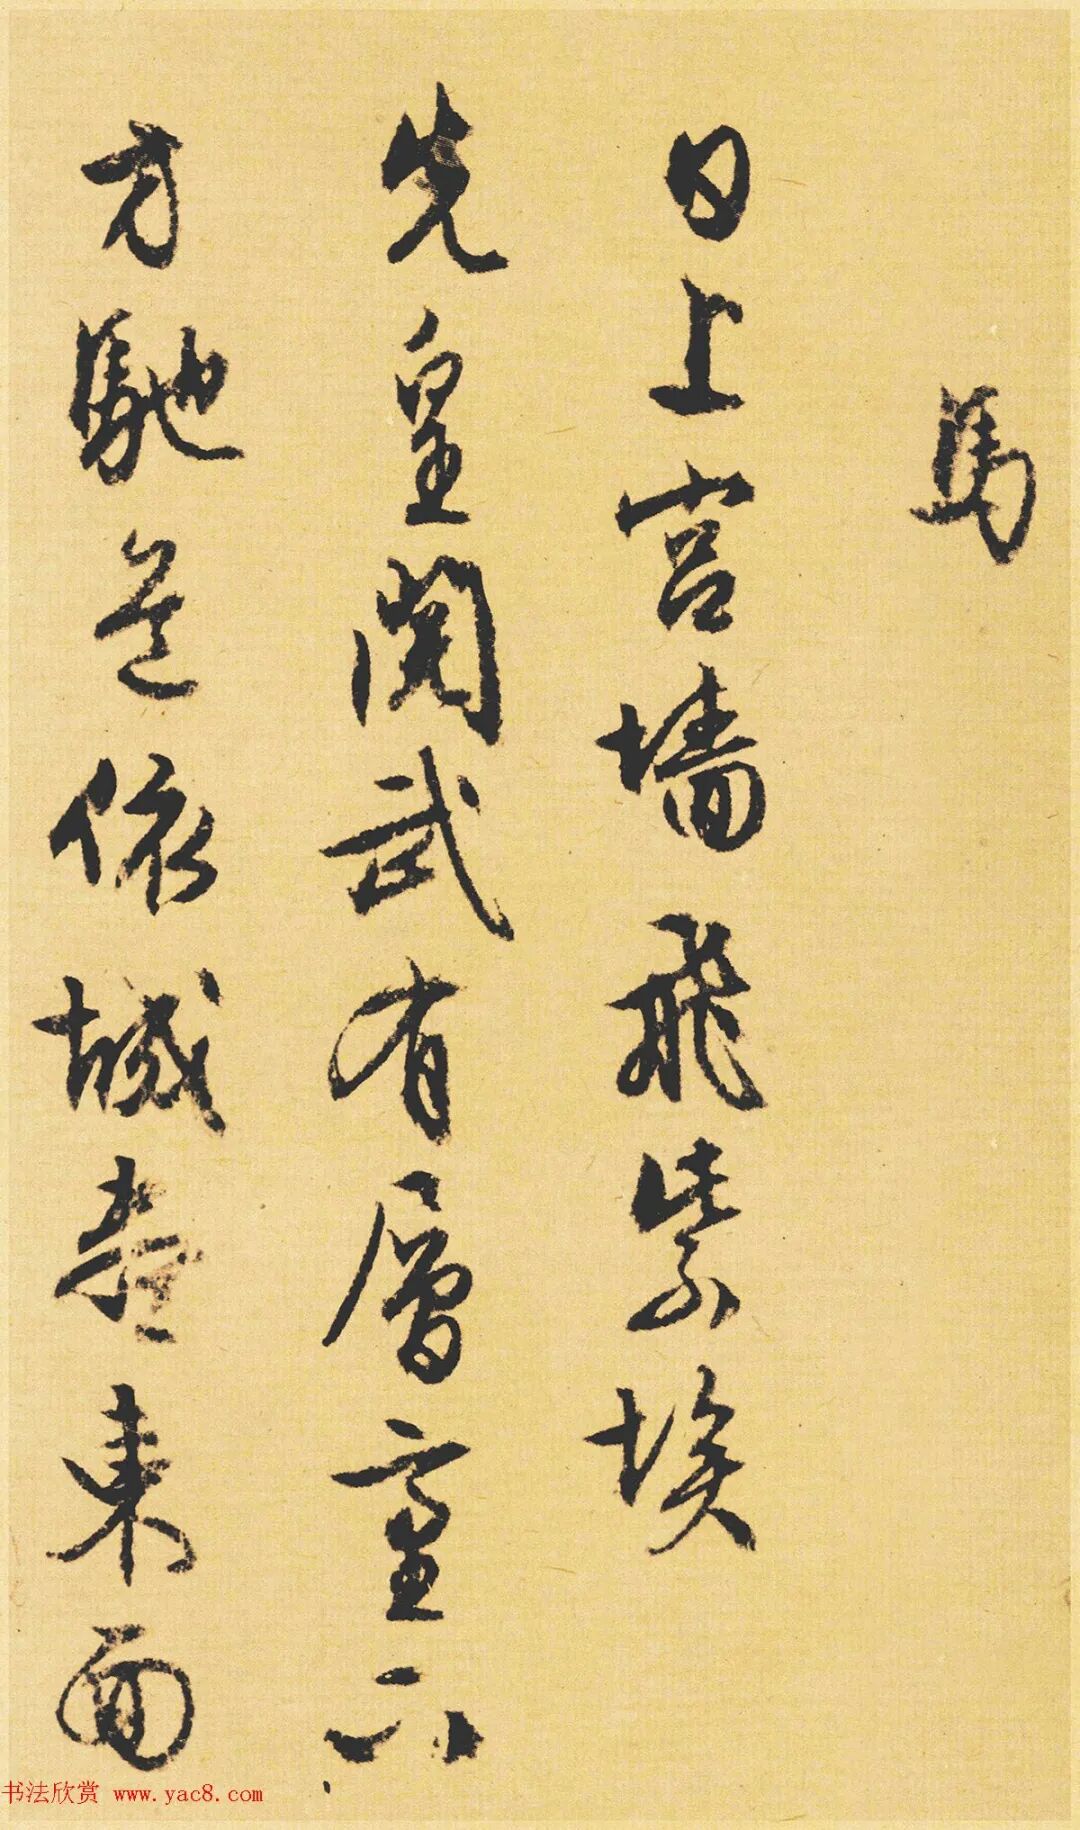 馬
日上宮墻飛紫埃
先皇閱武有層臺下
方馳道依城盡東面
书法欣赏 www.yac8.com